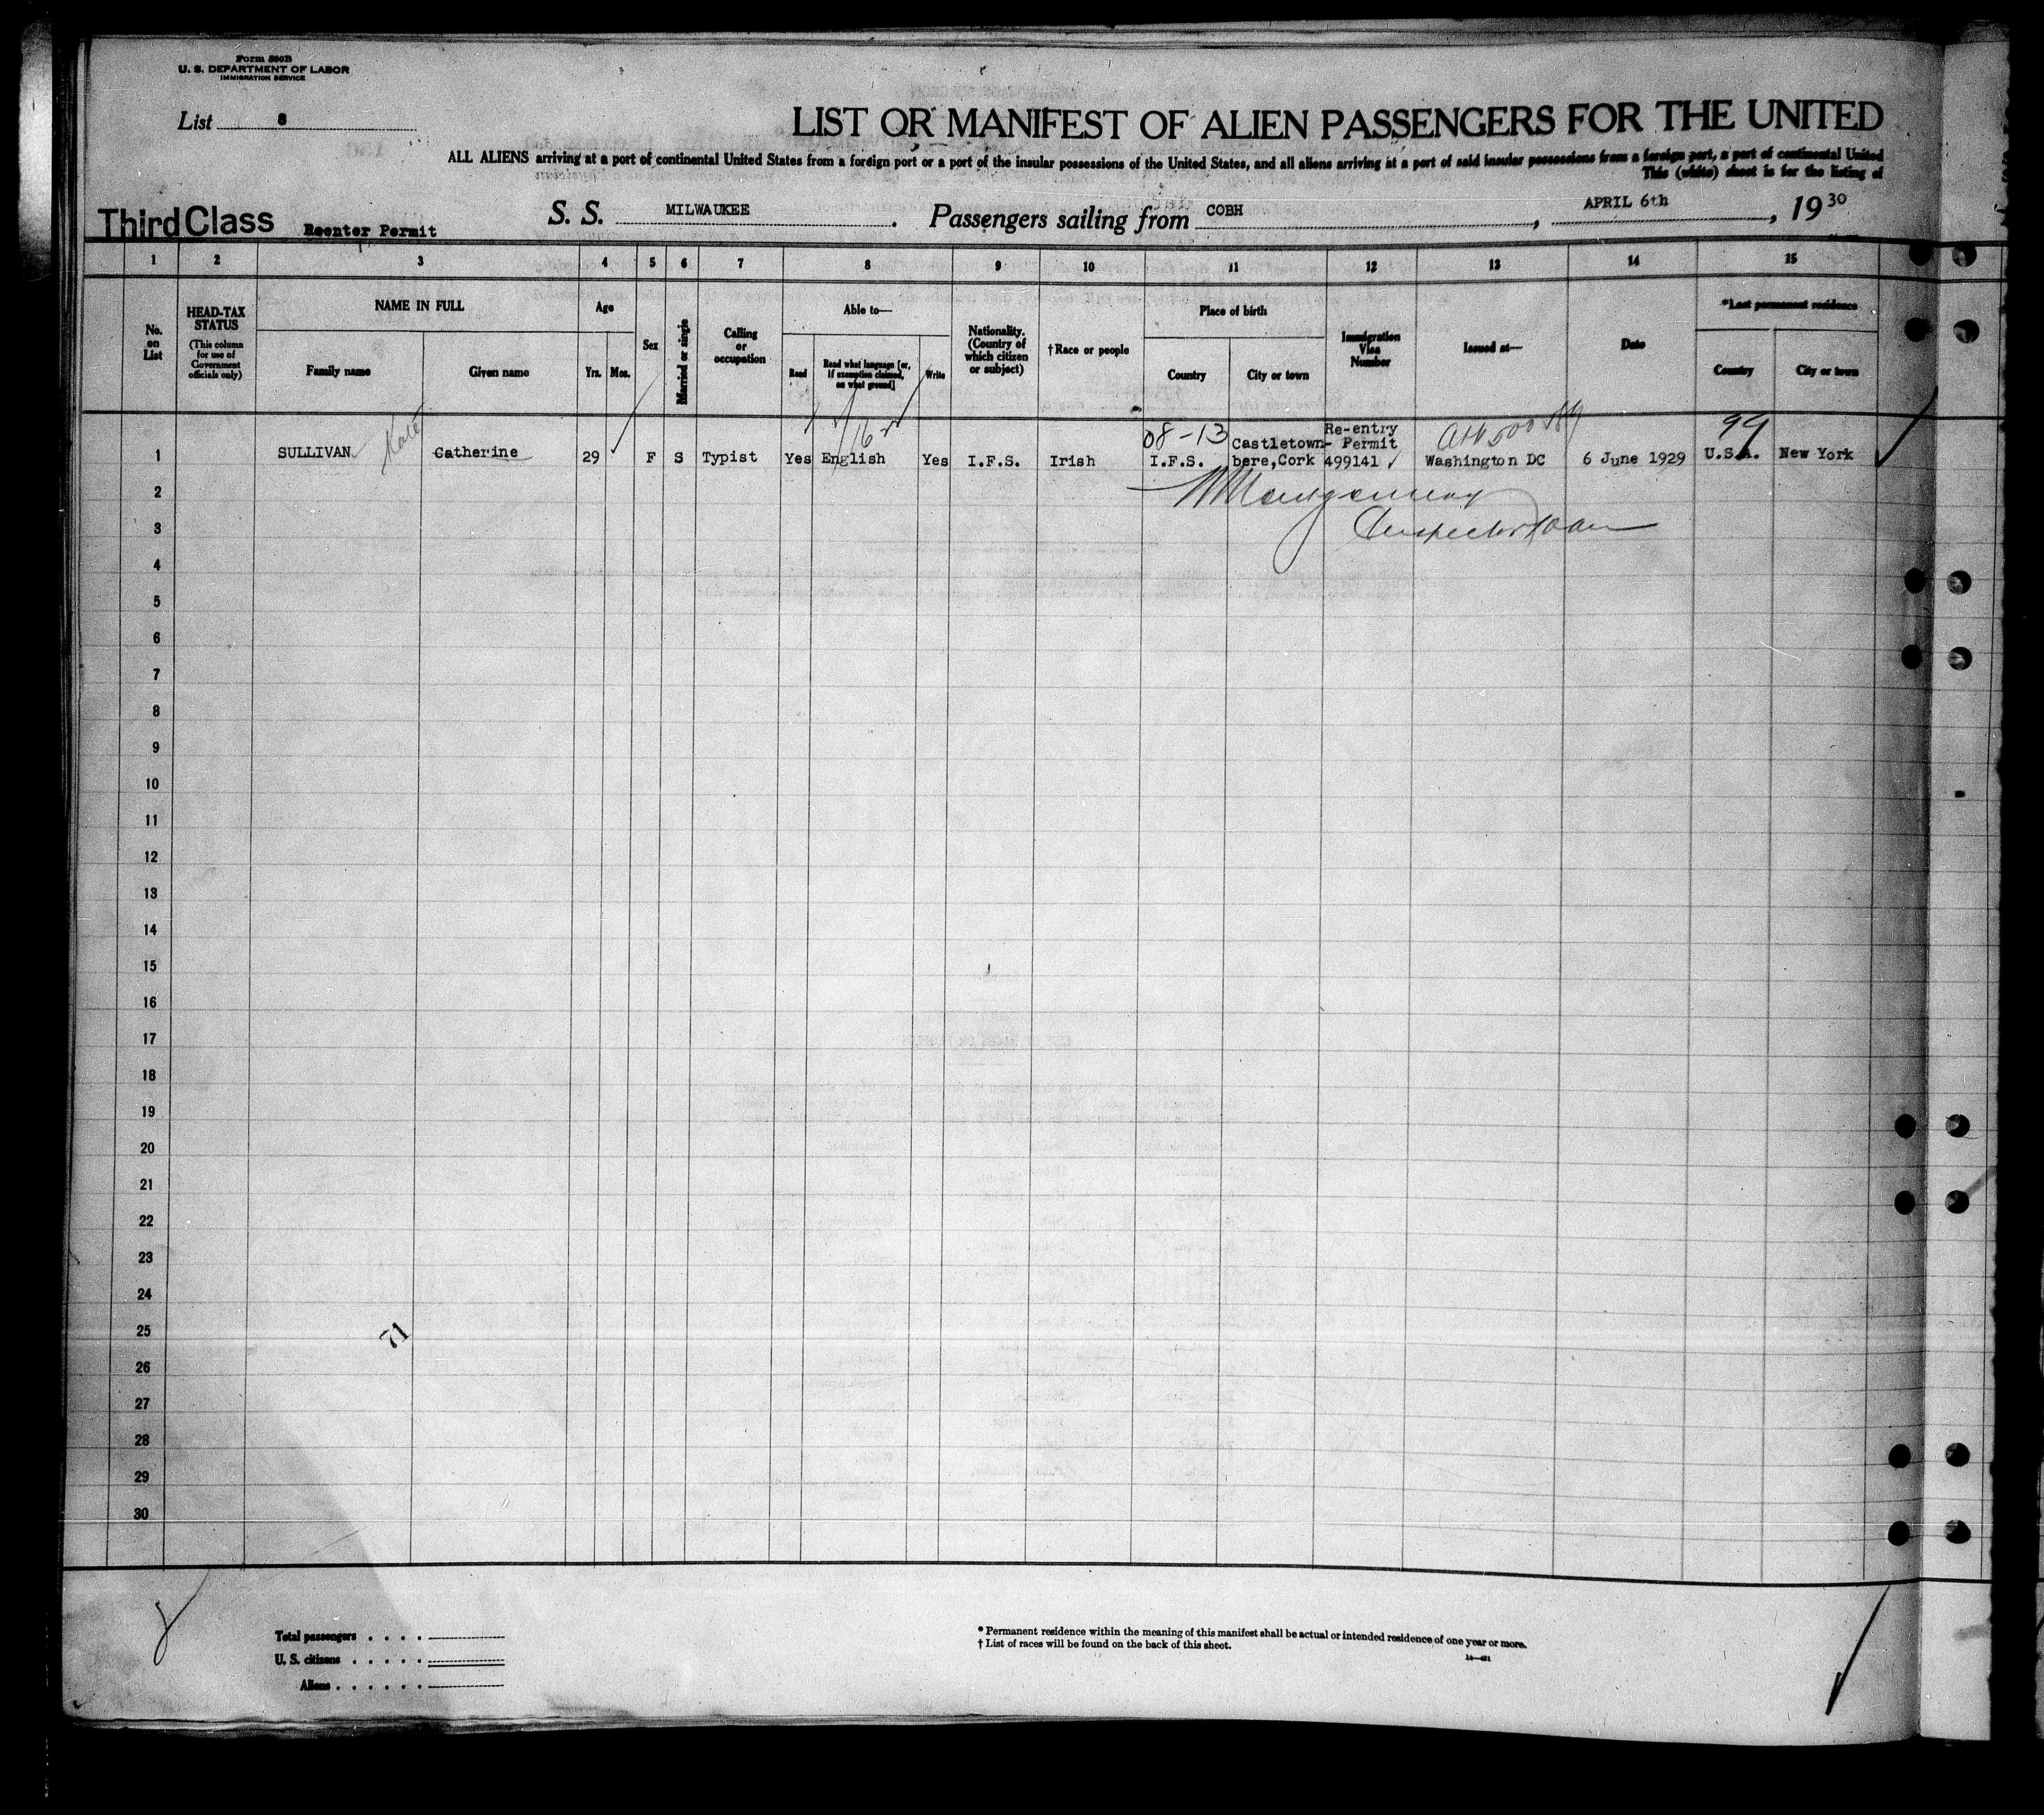 Form 500B
U. S. DEPARTMENT OF LABOR
IMMIGRATION SERVICE
List 8
LIST OR MANIFEST OF ALIEN PASSENGERS FOR THE UNITED
ALL ALIENS arriving at a port of continental United States from a foreign port or a port of the insular possessions of the United States, and all aliens arriving at a port of said insular possessions from a foreign port, a port of continental United
This (white) sheet is for the listing of
Third Class Reenter Permit S. S. MILWAUKEE. Passengers sailing from COBH, APRIL 6th, 1930
1 2 3 4 5 6 7 8 9 10 11 12 13 14 15
No. on List
HEAD-TAX STATUS
(This column for use of Government officials only)
NAME IN FULL
Family name
Given name
Age
Yrs. Mos.
Sex
Married or single
Calling or occupation
Able to—
Read
Read what language [or, if exemption claimed, on what ground]
Write
Nationality. (Country of which citizen or subject)
†Race or people
Place of birth
Country
City or town
Immigration Visa Number
Issued at—
Date
*Last permanent residence
Country
City or town
Kate
08-13
99
1 SULLIVAN Catherine 29 F S Typist Yes English Yes I.F.S. Irish I.F.S. Castletown-bere,Cork Re-entry Permit 499141 Washington DC 6 June 1929 U.S.A. New York
2
Montgomery
3
Inspector
4
5
6
7
8
9
10
11
12
13
14
15
16
17
18
19
20
21
22
23
24
25
71
26
27
28
29
30
Total passengers
U. S. citizens
Aliens
* Permanent residence within the meaning of this manifest shall be actual or intended residence of one year or more.
† List of races will be found on the back of this sheet.